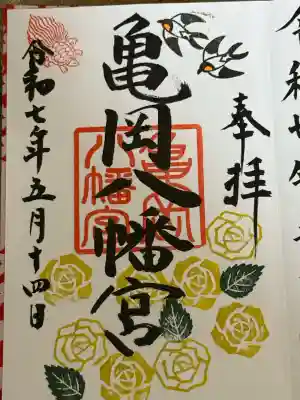 奉拝
亀岡八幡宮
令和七年五月十四日
亀岡
八幡宮